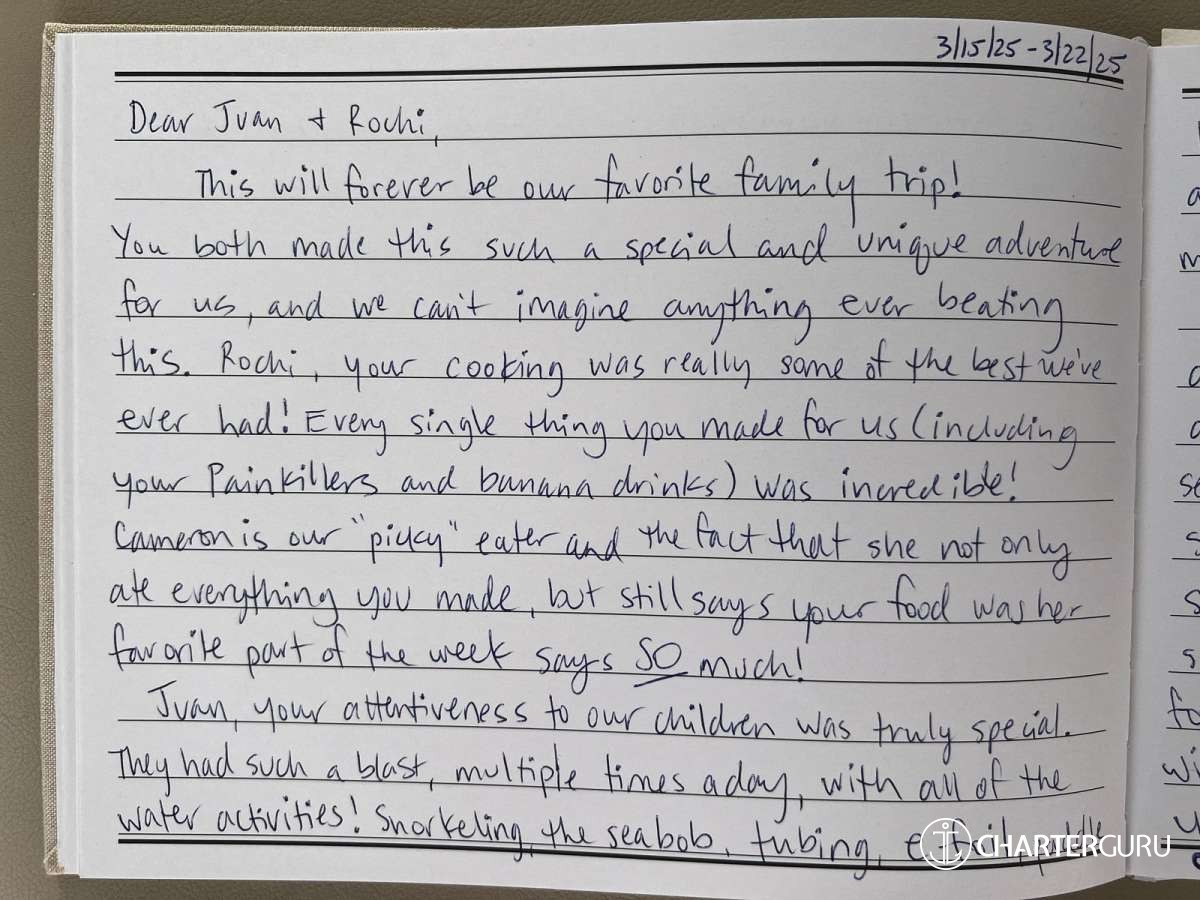 3/15/25 - 3/22/25
Dear Juan + Rochi,
This will forever be our favorite family trip!
You both made this such a special and unique adventure
for us, and we can't imagine anything ever beating
this. Rochi, your cooking was really some of the best we've
ever had! Every single thing you made for us (including
your Painkillers and banana drinks) was incredible!
Cameron is our "picky" eater and the fact that she not only
ate everything you made, but still says your food was her
favorite part of the week says SO much!
Juan, your attentiveness to our children was truly special.
They had such a blast, multiple times a day, with all of the
water activities! Snorkeling, the seabob, tubing,
CHARTERGURU